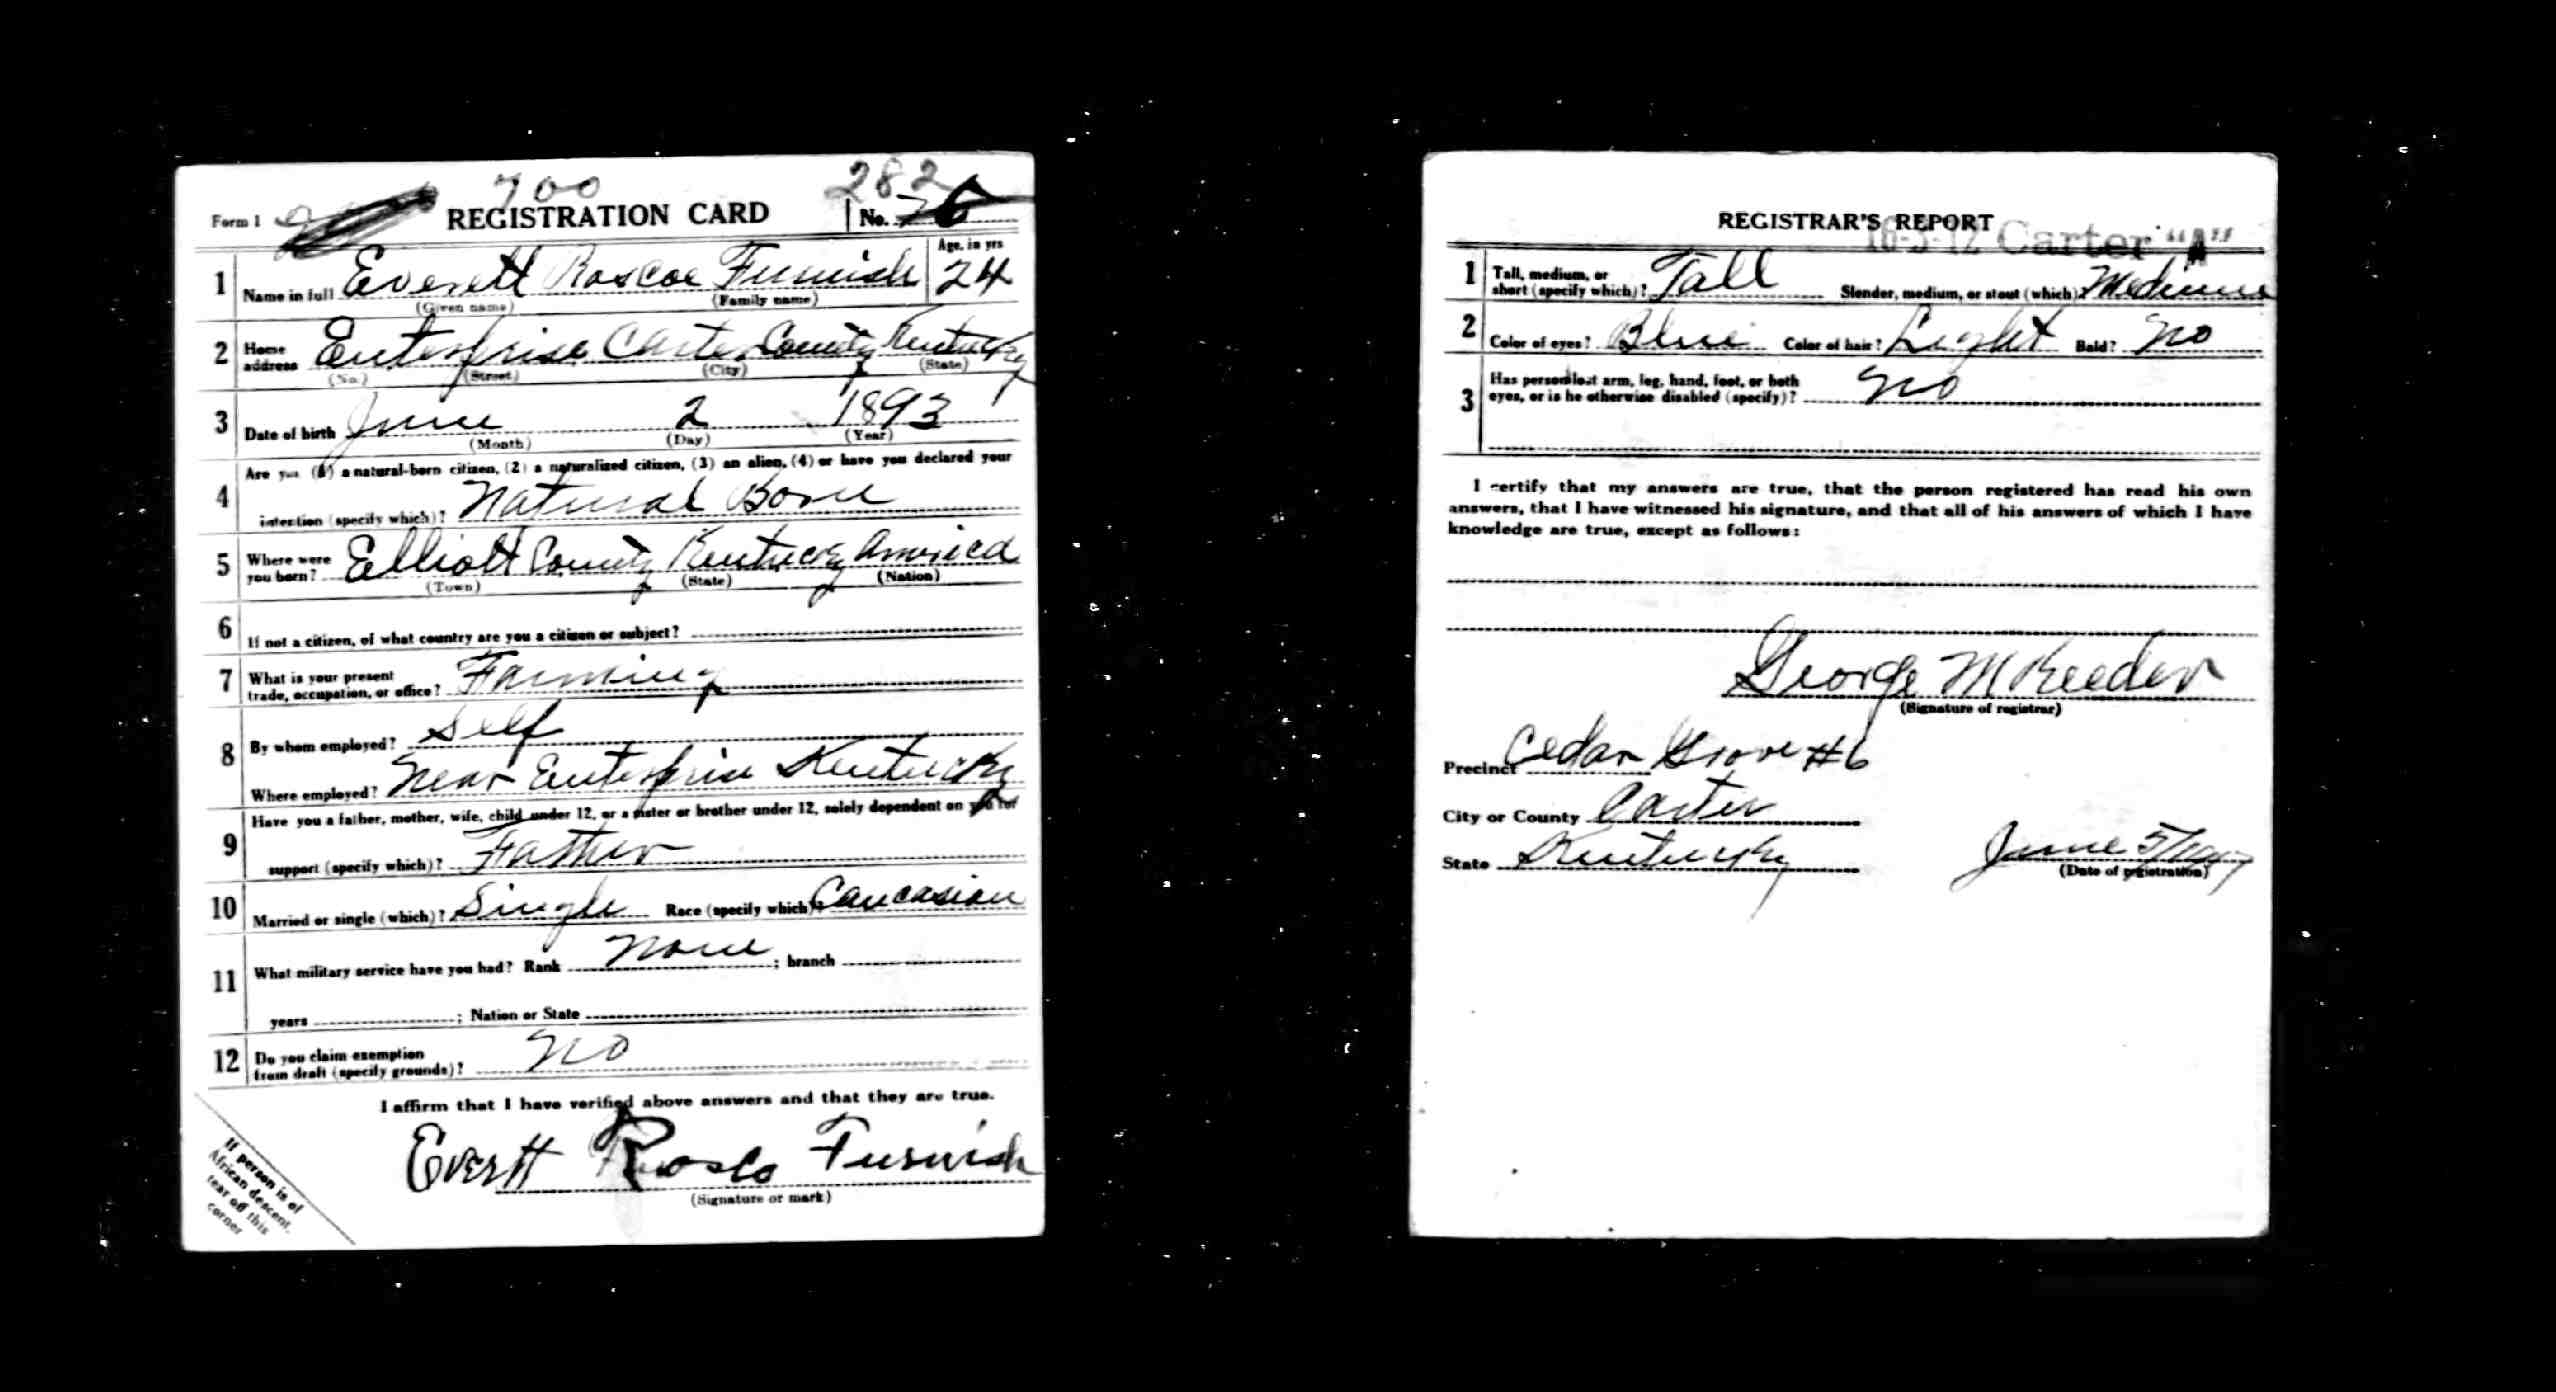 700 282
Form 1 REGISTRATION CARD No.
1 Name in full Everett Roscoe Furnish Age, in yrs 24
(Given name) (Family name)
2 Home address Enterprise Carter County Kentucky
(No.) (Street) (City) (State)
3 Date of birth June 2 1893
(Month) (Day) (Year)
4 Are you (1) a natural-born citizen, (2) a naturalized citizen, (3) an alien, (4) or have you declared your
intention (specify which)? Natural Born
5 Where were you born? Elliott County Kentucky America
(Town) (State) (Nation)
6 If not a citizen, of what country are you a citizen or subject?
7 What is your present
trade, occupation, or office? Farming
8 By whom employed? Self
Where employed? Near Enterprise Kentucky
9 Have you a father, mother, wife, child under 12, or a sister or brother under 12, solely dependent on you for
support (specify which)? Father
10 Married or single (which)? Single Race (specify which)? Caucasian
11 What military service have you had? Rank None ; branch
years ; Nation or State
12 Do you claim exemption
from draft (specify grounds)? No
I affirm that I have verified above answers and that they are true.
Evertt Rosco Furnish
(Signature or mark)
If person is of
African descent,
tear off this
corner
REGISTRAR'S REPORT
16-5-12 Carter "A"
1 Tall, medium, or
short (specify which)? Tall Slender, medium, or stout (which)? Medium
2 Color of eyes? Blue Color of hair? Light Bald? No
3 Has person lost arm, leg, hand, foot, or both
eyes, or is he otherwise disabled (specify)? No
I certify that my answers are true, that the person registered has read his own
answers, that I have witnessed his signature, and that all of his answers of which I have
knowledge are true, except as follows:
George M Reeder
(Signature of registrar)
Precinct Cedar Grove #6
City or County Carter
State Kentucky June 5/1917
(Date of registration)